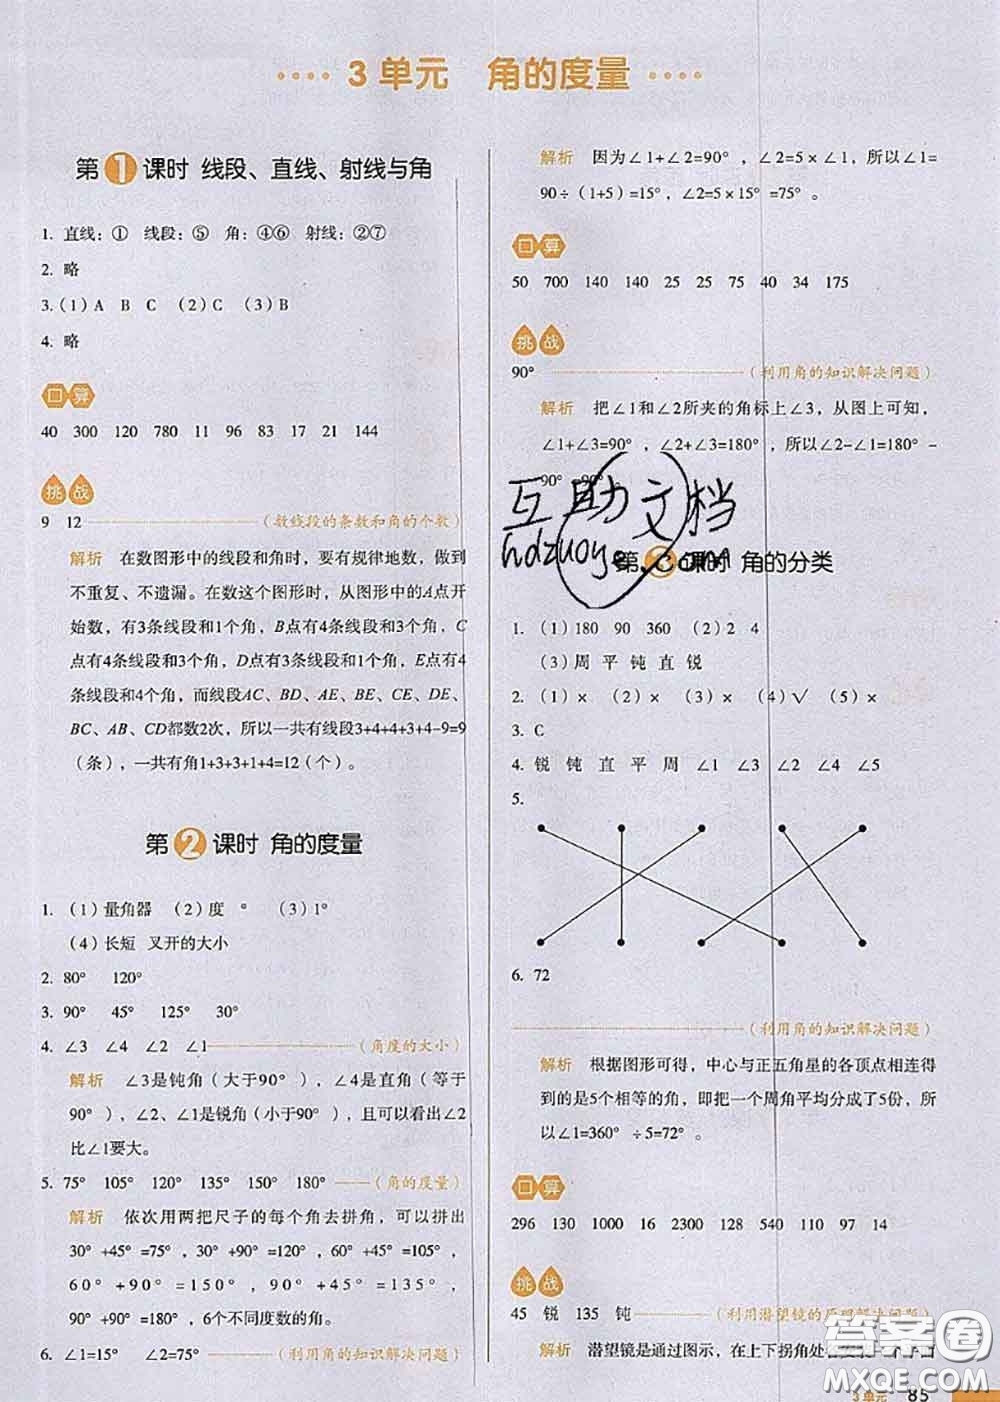 3 单元 角的度量
第1课时 线段、直线、射线与角
1. 直线：① 线段：⑤ 角：④⑥ 射线：②⑦
2. 略
3.（1）A B C （2）C （3）B
4. 略
口算
40 300 120 780 11 96 83 17 21 144
挑战
9 12（数线段的条数和角的个数）
解析 在数图形中的线段和角时，要有规律地数，做到
不重复、不遗漏。在数这个图形时，从图形中的A点开
始数，有3条线段和1个角，B点有4条线段和3个角，C
点有4条线段和3个角，D点有3条线段和1个角，E点有4
条线段和4个角，而线段AC、BD、AE、BE、CE、DE、
BC、AB、CD都数2次，所以一共有线段3+4+4+3+4-9=9
（条），一共有角1+3+3+1+4=12（个）。
第2课时 角的度量
1.（1）量角器 （2）度 ° （3）1°
（4）长短 叉开的大小
2. 80° 120°
3. 90° 45° 125° 30°
4. ∠3 ∠4 ∠2 ∠1（角度的大小）
解析 ∠3是钝角（大于90°），∠4是直角（等于
90°），∠2、∠1是锐角（小于90°），且可以看出∠2
比∠1要大。
5. 75° 105° 120° 135° 150° 180°（角的度量）
解析 依次用两把尺子的每个角去拼角，可以拼出
30°+45°=75°，30°+90°=120°，60°+45°=105°，
60°+90°=150°，90°+45°=135°，
90°+90°=180°，6个不同度数的角。
6. ∠1=15° ∠2=75°（利用角的知识解决问题）
解析 因为∠1+∠2=90°，∠2=5×∠1，所以∠1=
90÷（1+5）=15°，∠2=5×15°=75°。
口算
50 700 140 140 25 25 75 40 34 175
挑战
90°（利用角的知识解决问题）
解析 把∠1和∠2所夹的角标上∠3，从图上可知，
∠1+∠3=90°，∠2+∠3=180°，所以∠2-∠1=180°-
90°=90°。
互助文档
hdzuoye.com
第3课时 角的分类
1.（1）180 90 360 （2）2 4
（3）周 平 钝 直 锐
2.（1）× （2）× （3）× （4）√ （5）×
3. C
4. 锐 钝 直 平 周 ∠1 ∠3 ∠2 ∠4 ∠5
5.
6. 72
（利用角的知识解决问题）
解析 根据图形可得，中心与正五角星的各顶点相连得
到的是5个相等的角，即把一个周角平均分成了5份，所
以∠1=360°÷5=72°。
口算
296 130 1000 16 2300 128 540 110 97 14
挑战
45 锐 135 钝（利用潜望镜的原理解决问题）
解析 潜望镜是通过图示，在上下拐角处
答案圈
MXQE.COM
3单元 85